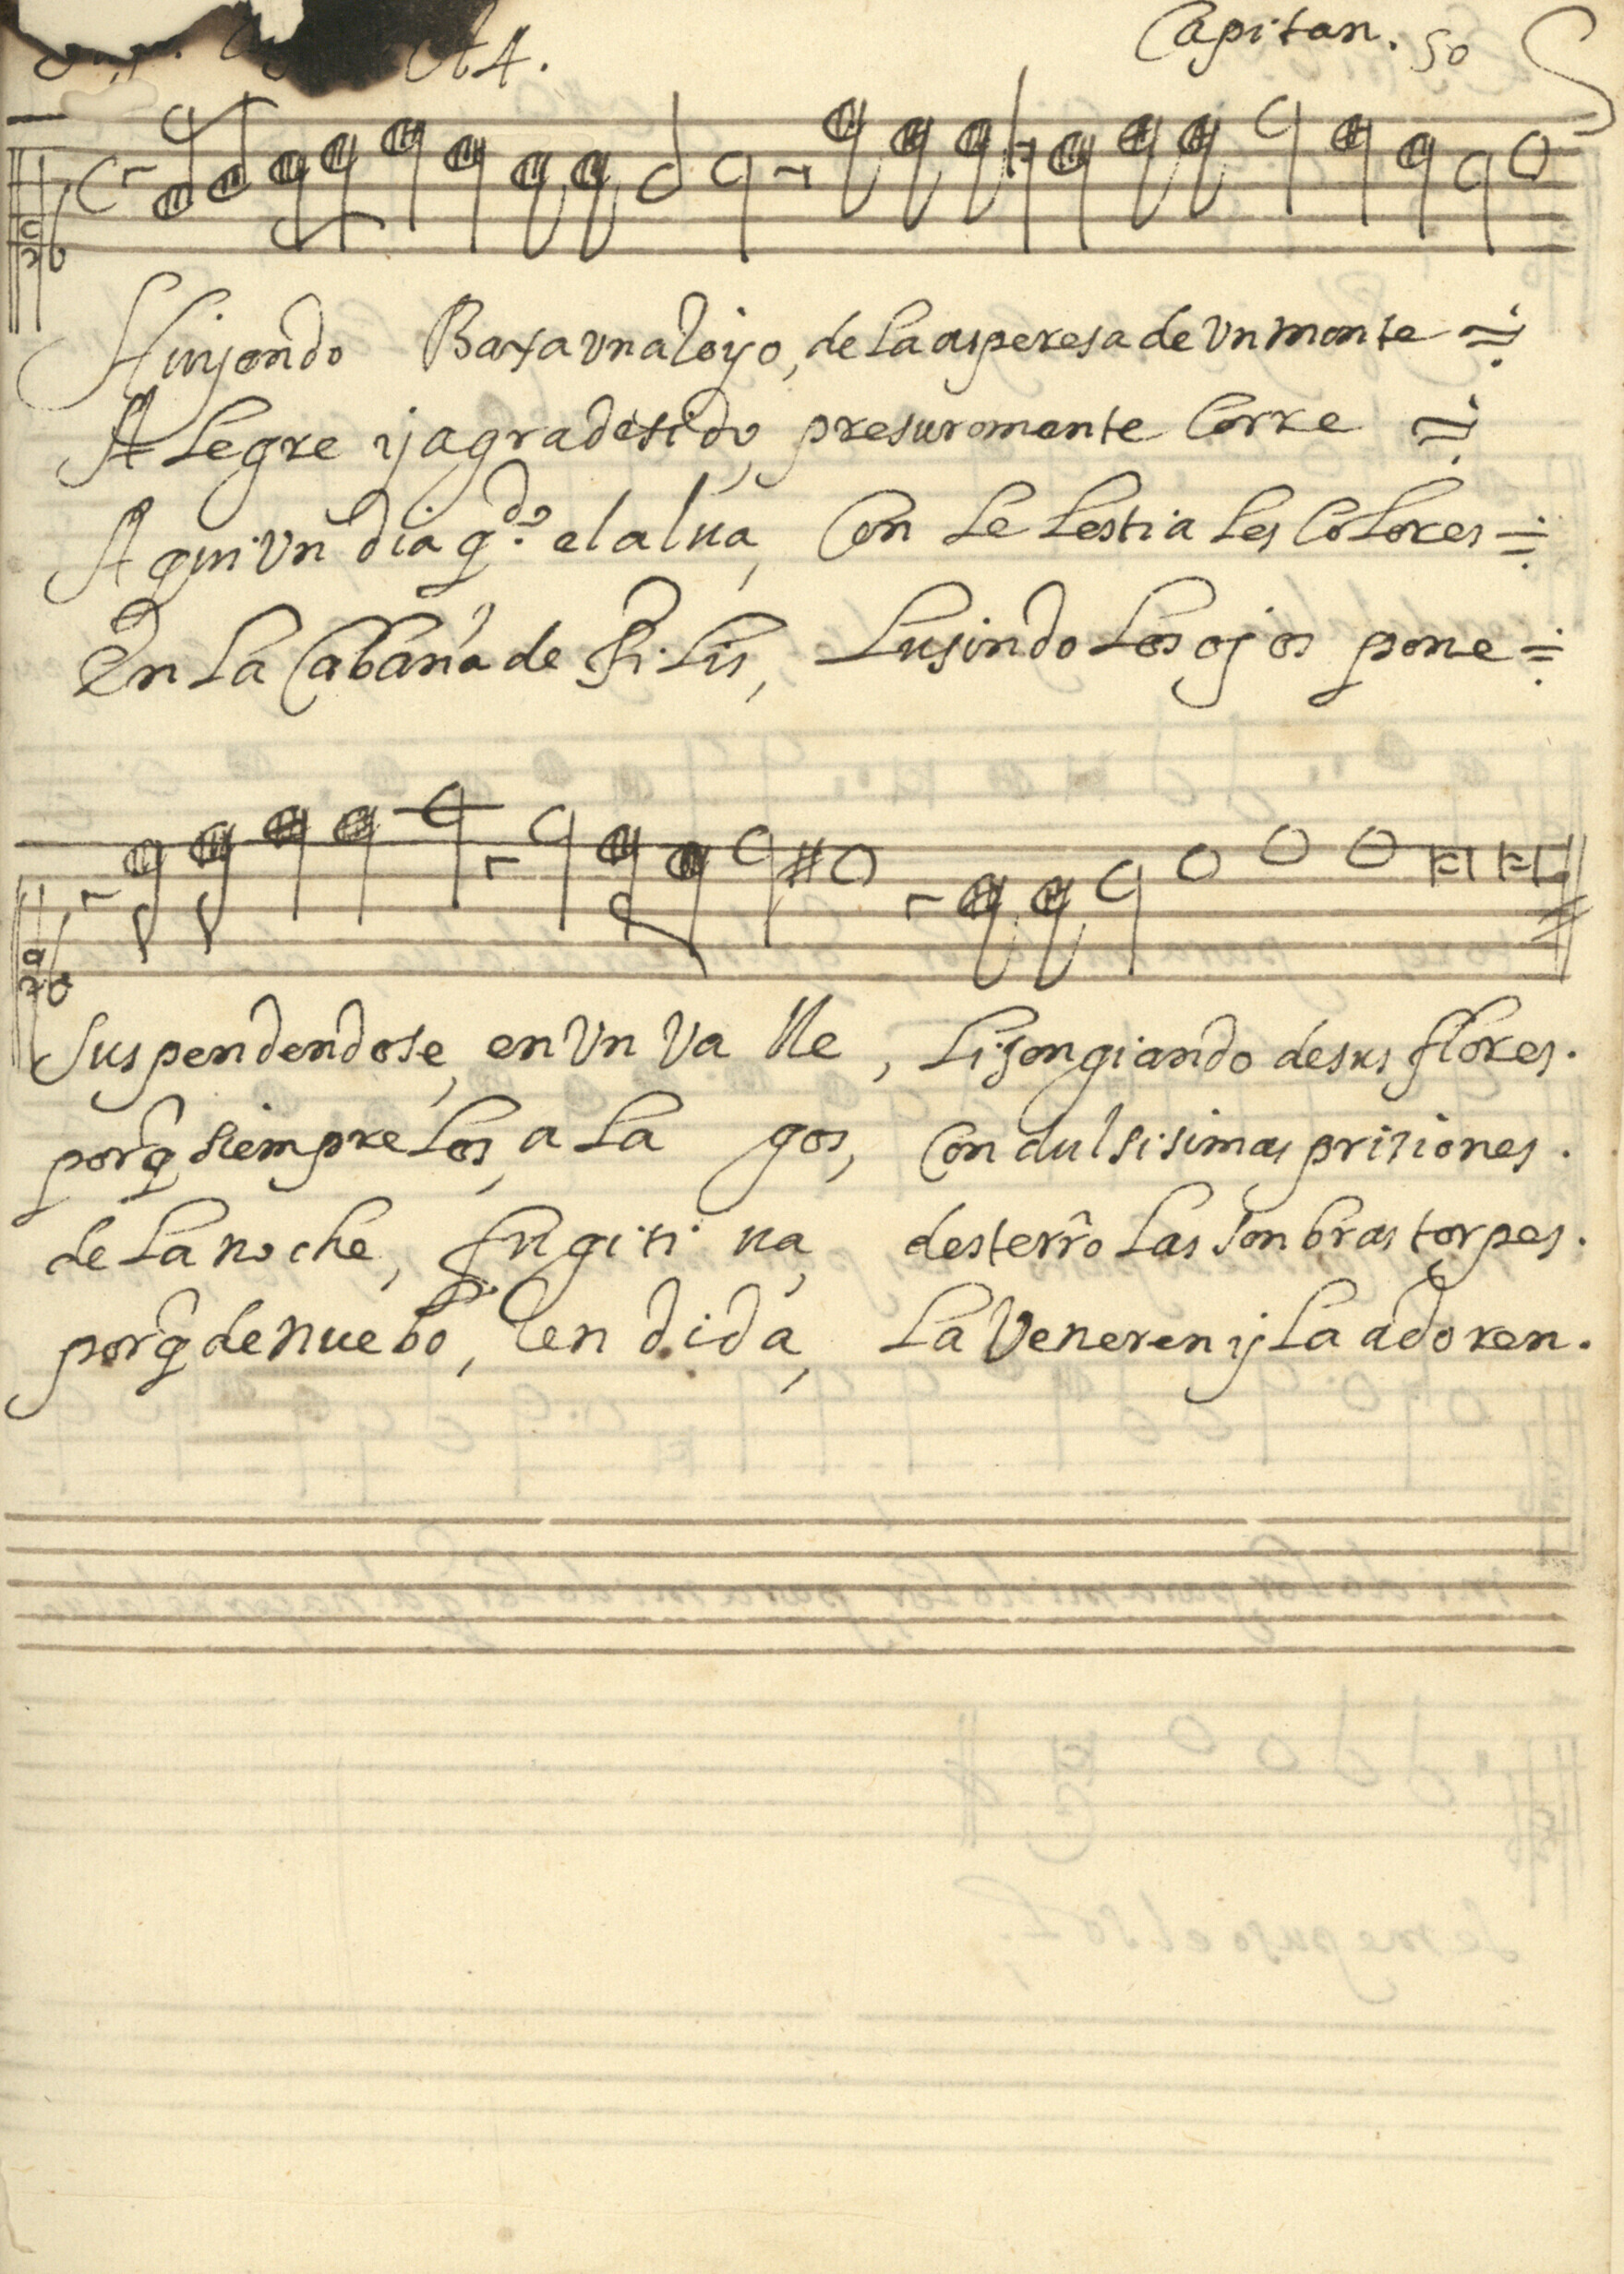 A4. Capitan. 50
Huyendo Baxa un aRoyo, de la aspereza de Vn monte
ALegre y agradesido, presuromente Corre
Aqui Vn dia q.do el alua, Con SeLestiaLes CoLores
En La Cabaña de FiLis, Lusindo Los ojos pone
Suspendendose, en Vn Valle, Lisongiando de sus flores.
porq̃ siempre Los, aLagos, Con dulsisimas prisiones.
de La noche, fugitiua, desterro Las Sonbras torpes.
porq̃ de nuebo, Rendida, La Veneren y La adoren.